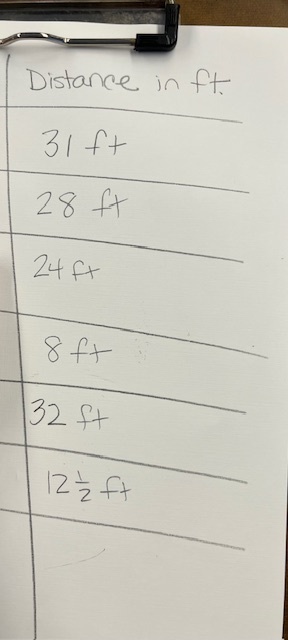 Distance in ft.
31 ft
28 ft
24 ft
8 ft
32 ft
12 ½ ft